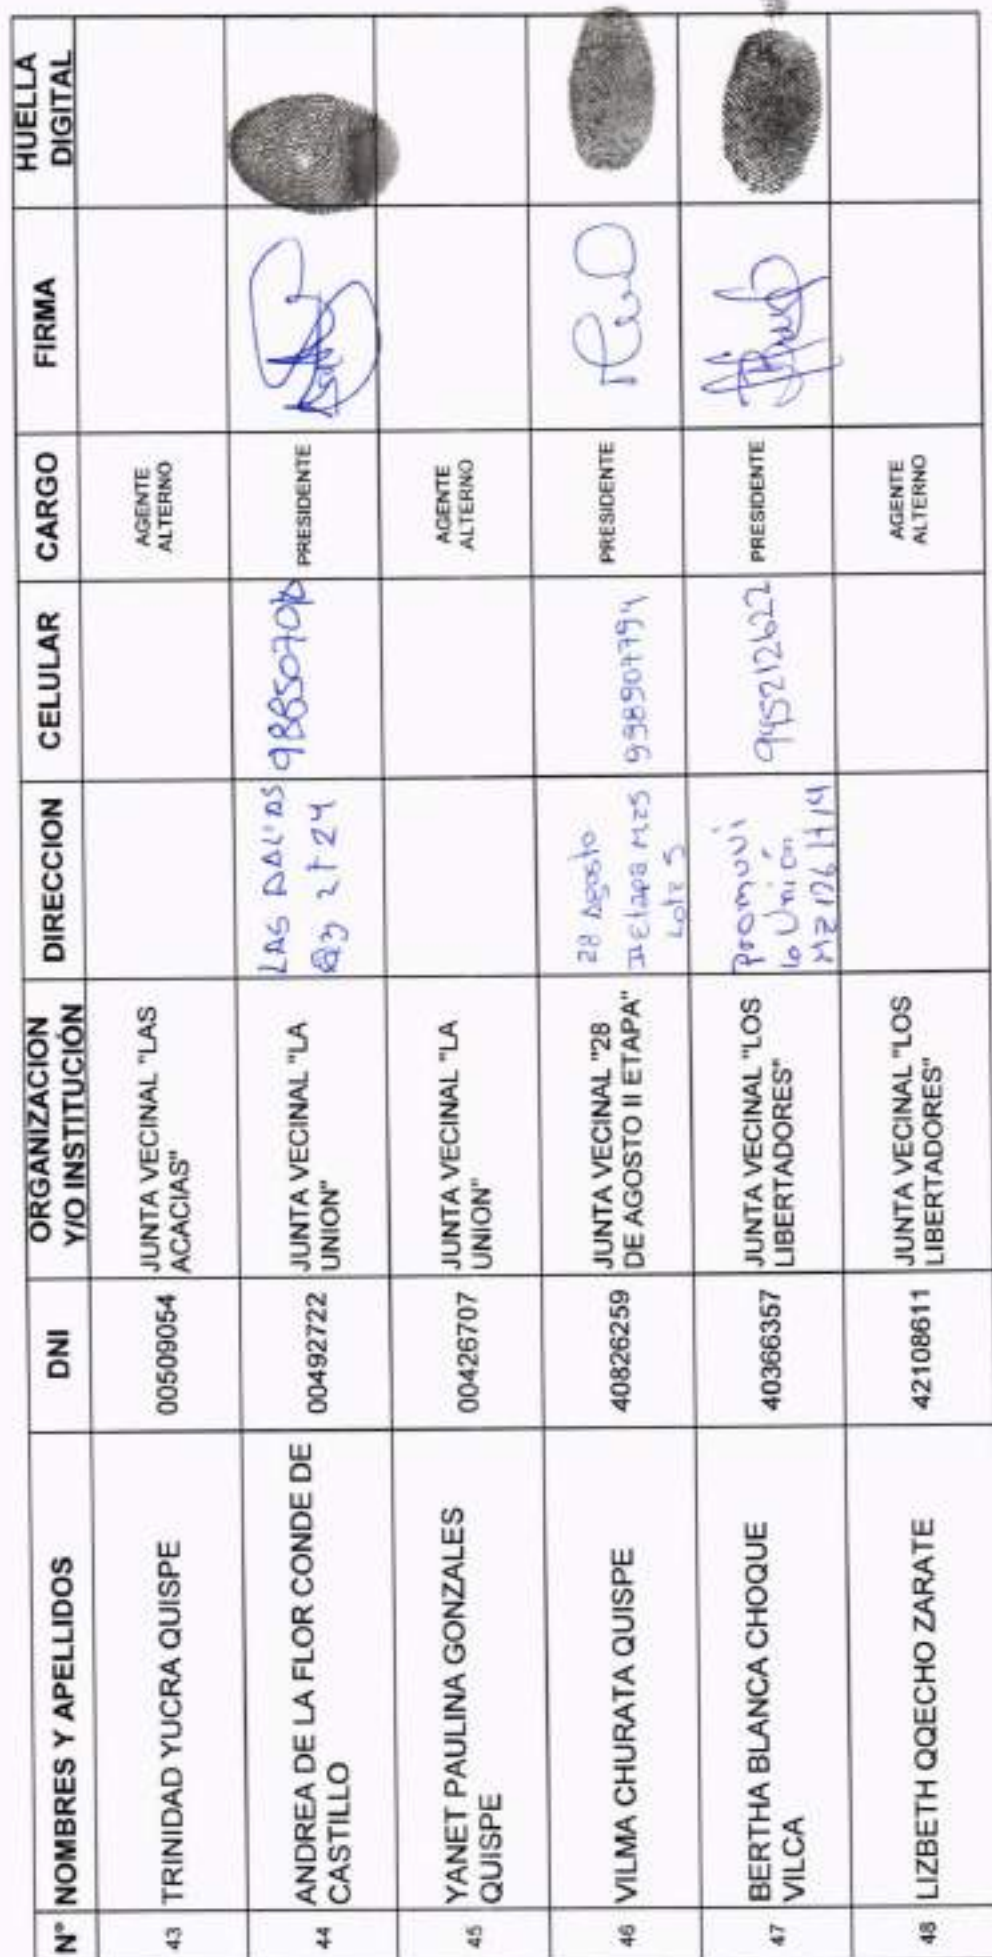 N° NOMBRES Y APELLIDOS DNI ORGANIZACION Y/O INSTITUCIÓN DIRECCION CELULAR CARGO FIRMA HUELLA DIGITAL
43 TRINIDAD YUCRA QUISPE 00509054 JUNTA VECINAL "LAS
ACACIAS" AGENTE
ALTERNO
44 ANDREA DE LA FLOR CONDE DE
CASTILLO 00492722 JUNTA VECINAL "LA
UNION" LAS
24 PRESIDENTE
45 YANET PAULINA GONZALES
QUISPE 00426707 JUNTA VECINAL "LA
UNION" AGENTE
ALTERNO
46 VILMA CHURATA QUISPE 40826259 JUNTA VECINAL "28
DE AGOSTO II ETAPA" 28 Agosto
II Etapa Mz5
Lote 5 998907794 PRESIDENTE
47 BERTHA BLANCA CHOQUE
VILCA 40366357 JUNTA VECINAL "LOS
LIBERTADORES" Promuvi
la Unión
Mz 126 lt 14 945212622 PRESIDENTE
48 LIZBETH QQECHO ZARATE 42108611 JUNTA VECINAL "LOS
LIBERTADORES" AGENTE
ALTERNO